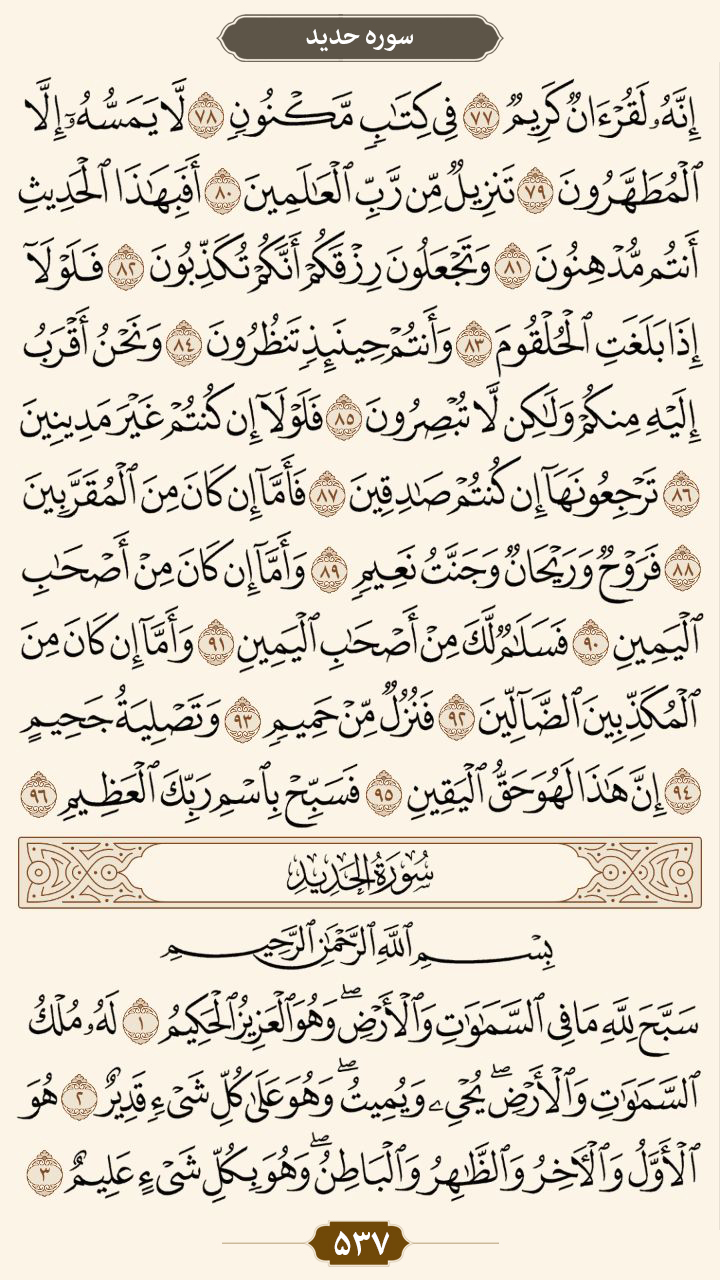 سوره حدید
إِنَّهُۥ لَقُرْءَانٌ كَرِيمٌ ٧٧ فِى كِتَٰبٍ مَّكْنُونٍ ٧٨ لَّا يَمَسُّهُۥٓ إِلَّا
ٱلْمُطَهَّرُونَ ٧٩ تَنزِيلٌ مِّن رَّبِّ ٱلْعَٰلَمِينَ ٨٠ أَفَبِهَٰذَا ٱلْحَدِيثِ
أَنتُم مُّدْهِنُونَ ٨١ وَتَجْعَلُونَ رِزْقَكُمْ أَنَّكُمْ تُكَذِّبُونَ ٨٢ فَلَوْلَآ
إِذَا بَلَغَتِ ٱلْحُلْقُومَ ٨٣ وَأَنتُمْ حِينَئِذٍ تَنظُرُونَ ٨٤ وَنَحْنُ أَقْرَبُ
إِلَيْهِ مِنكُمْ وَلَٰكِن لَّا تُبْصِرُونَ ٨٥ فَلَوْلَآ إِن كُنتُمْ غَيْرَ مَدِينِينَ
٨٦ تَرْجِعُونَهَآ إِن كُنتُمْ صَٰدِقِينَ ٨٧ فَأَمَّآ إِن كَانَ مِنَ ٱلْمُقَرَّبِينَ
٨٨ فَرَوْحٌ وَرَيْحَانٌ وَجَنَّتُ نَعِيمٍ ٨٩ وَأَمَّآ إِن كَانَ مِنْ أَصْحَٰبِ
ٱلْيَمِينِ ٩٠ فَسَلَٰمٌ لَّكَ مِنْ أَصْحَٰبِ ٱلْيَمِينِ ٩١ وَأَمَّآ إِن كَانَ مِنَ
ٱلْمُكَذِّبِينَ ٱلضَّآلِّينَ ٩٢ فَنُزُلٌ مِّنْ حَمِيمٍ ٩٣ وَتَصْلِيَةُ جَحِيمٍ
٩٤ إِنَّ هَٰذَا لَهُوَ حَقُّ ٱلْيَقِينِ ٩٥ فَسَبِّحْ بِٱسْمِ رَبِّكَ ٱلْعَظِيمِ ٩٦
سُورَةُ الحَدِيدِ
بِسْمِ ٱللَّهِ ٱلرَّحْمَٰنِ ٱلرَّحِيمِ
سَبَّحَ لِلَّهِ مَا فِى ٱلسَّمَٰوَٰتِ وَٱلْأَرْضِ ۖ وَهُوَ ٱلْعَزِيزُ ٱلْحَكِيمُ ١ لَهُۥ مُلْكُ
ٱلسَّمَٰوَٰتِ وَٱلْأَرْضِ ۖ يُحْىِۦ وَيُمِيتُ ۖ وَهُوَ عَلَىٰ كُلِّ شَىْءٍ قَدِيرٌ ٢ هُوَ
ٱلْأَوَّلُ وَٱلْءَاخِرُ وَٱلظَّٰهِرُ وَٱلْبَاطِنُ ۖ وَهُوَ بِكُلِّ شَىْءٍ عَلِيمٌ ٣
۵۳۷